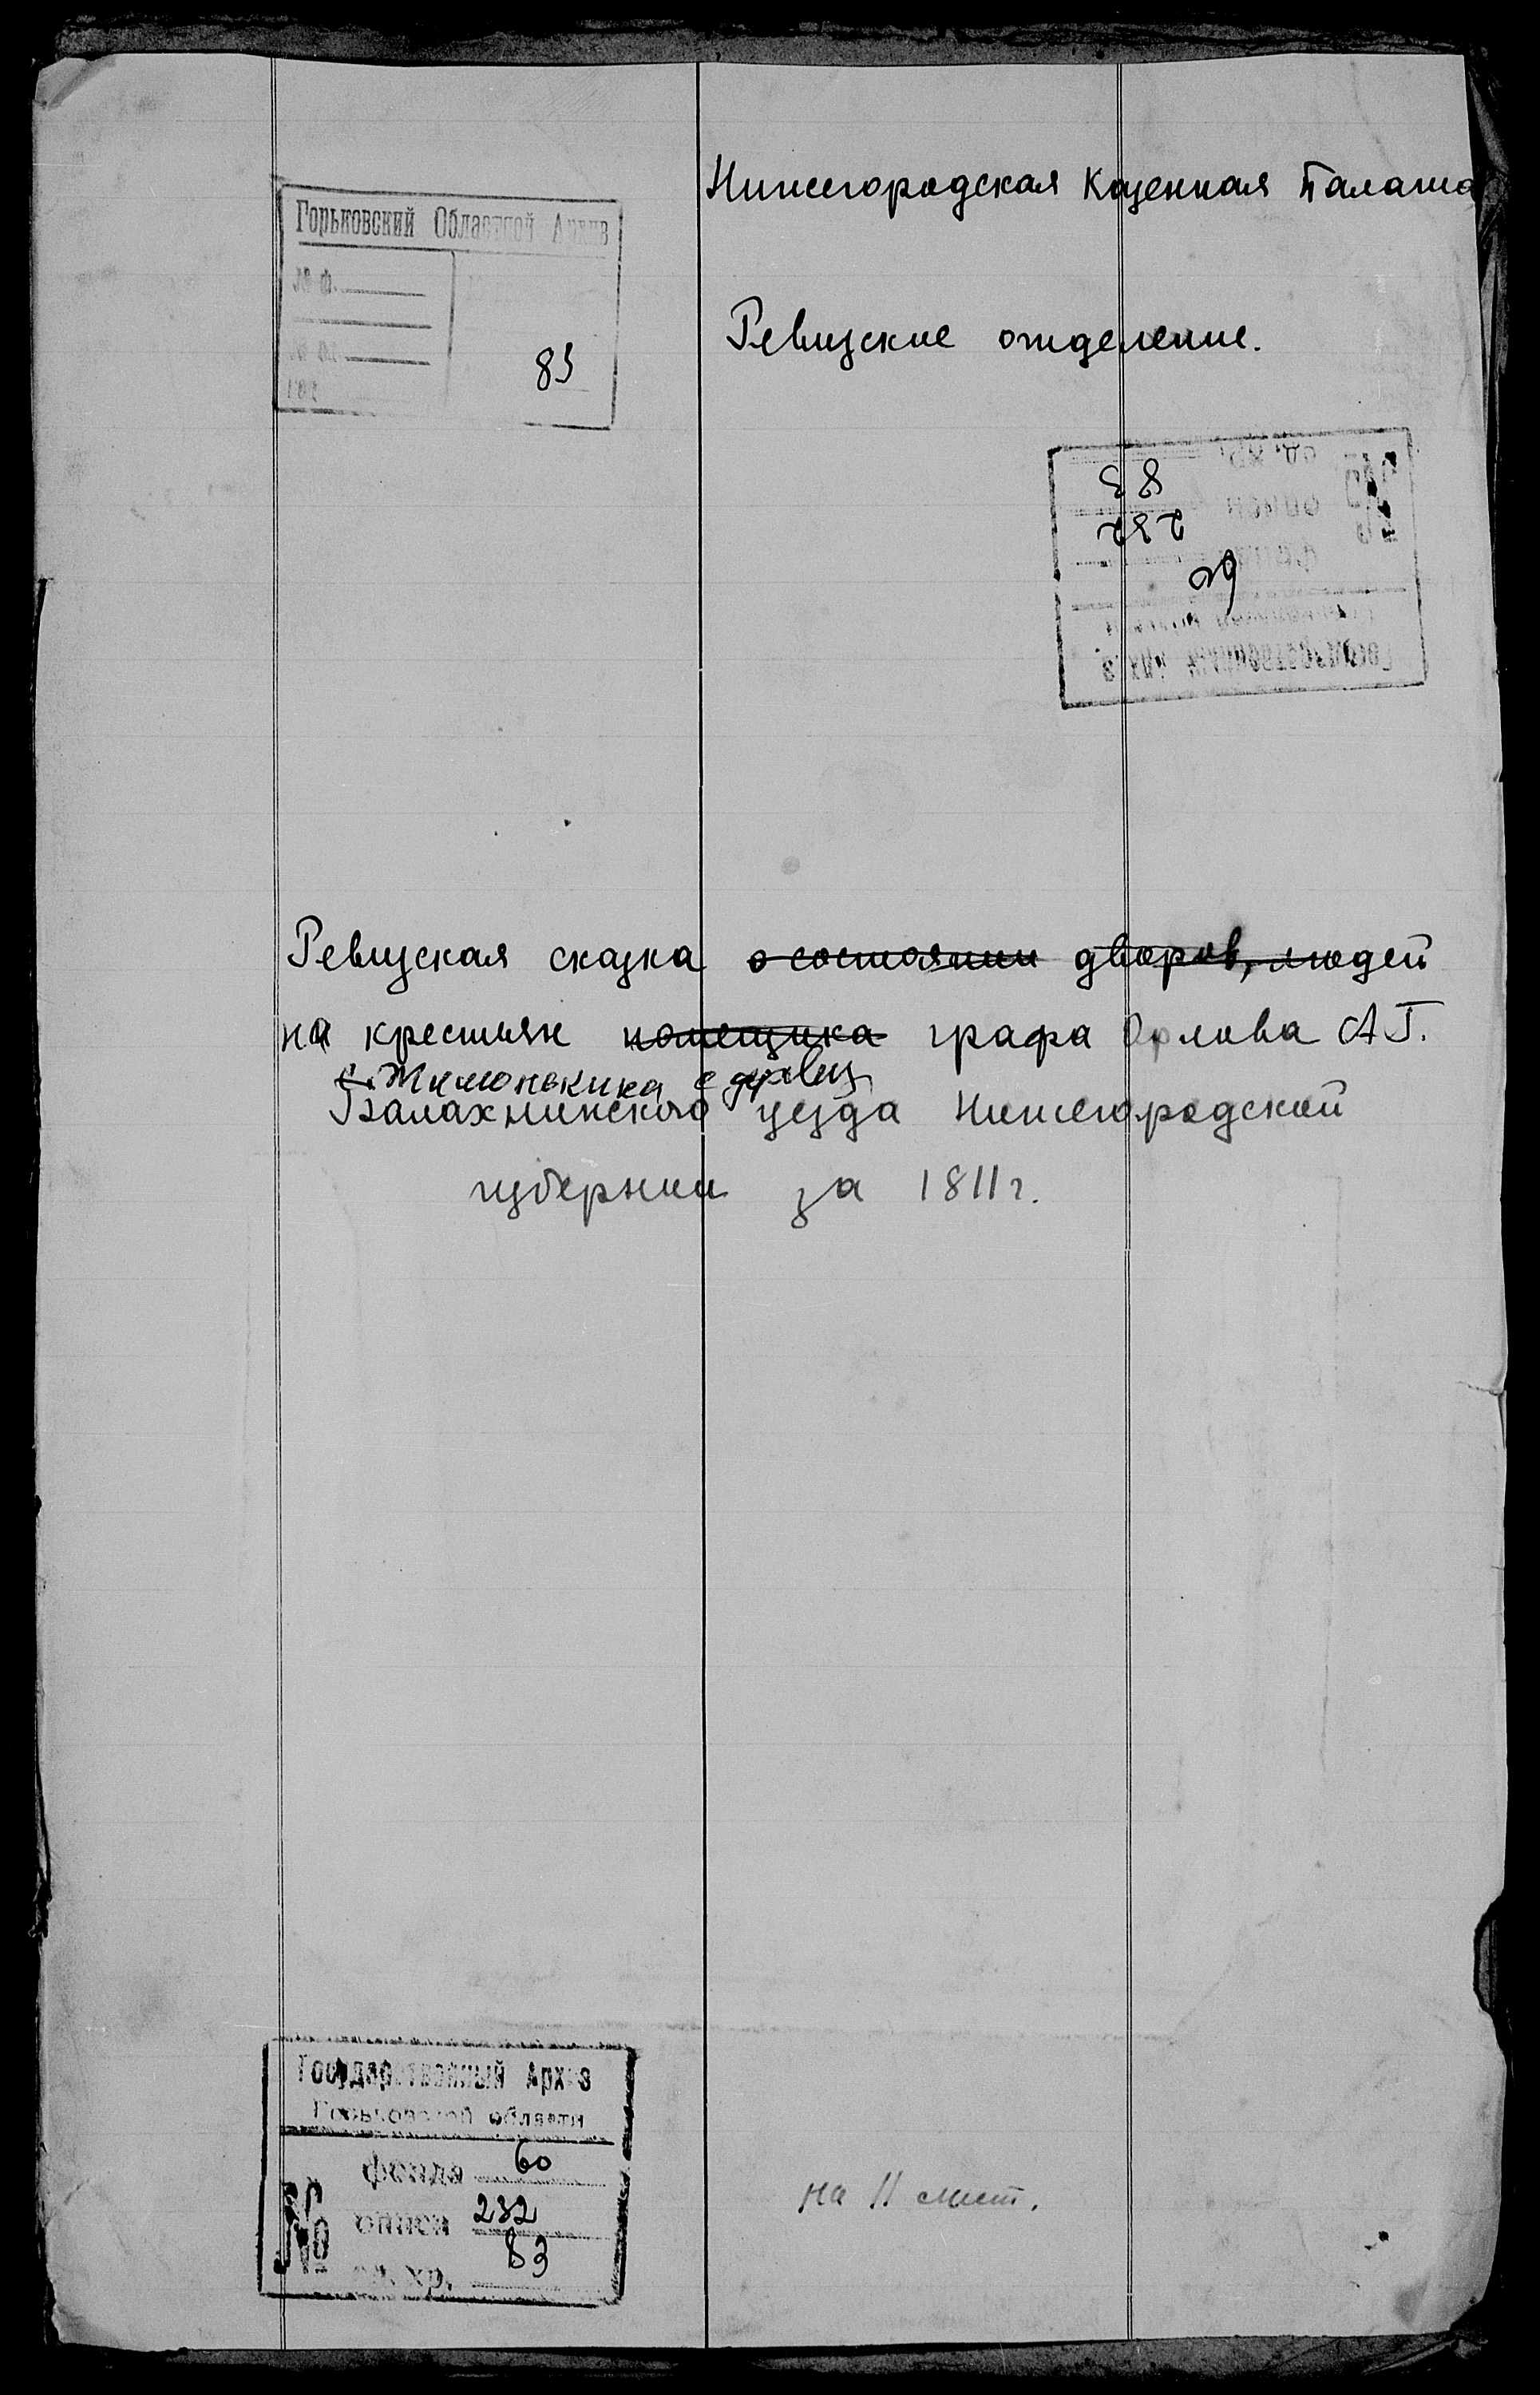 Нижегородская Казенная Палата
Горьковский Областной Архив
№ ф.
83
Ревизские отделение.
ед. хр. 83
описи 232
фонда 60
Государственный Архив
Ревизская сказка о состоянии дворов, людей
на крестьян помещика графа Орлова А Г.
Балахнинского уезда Нижегородской
губернии за 1811 г.
Государственный Архив
Горьковской области
№
фонда 60
описи 232
ед. хр. 83
на 11 лист.